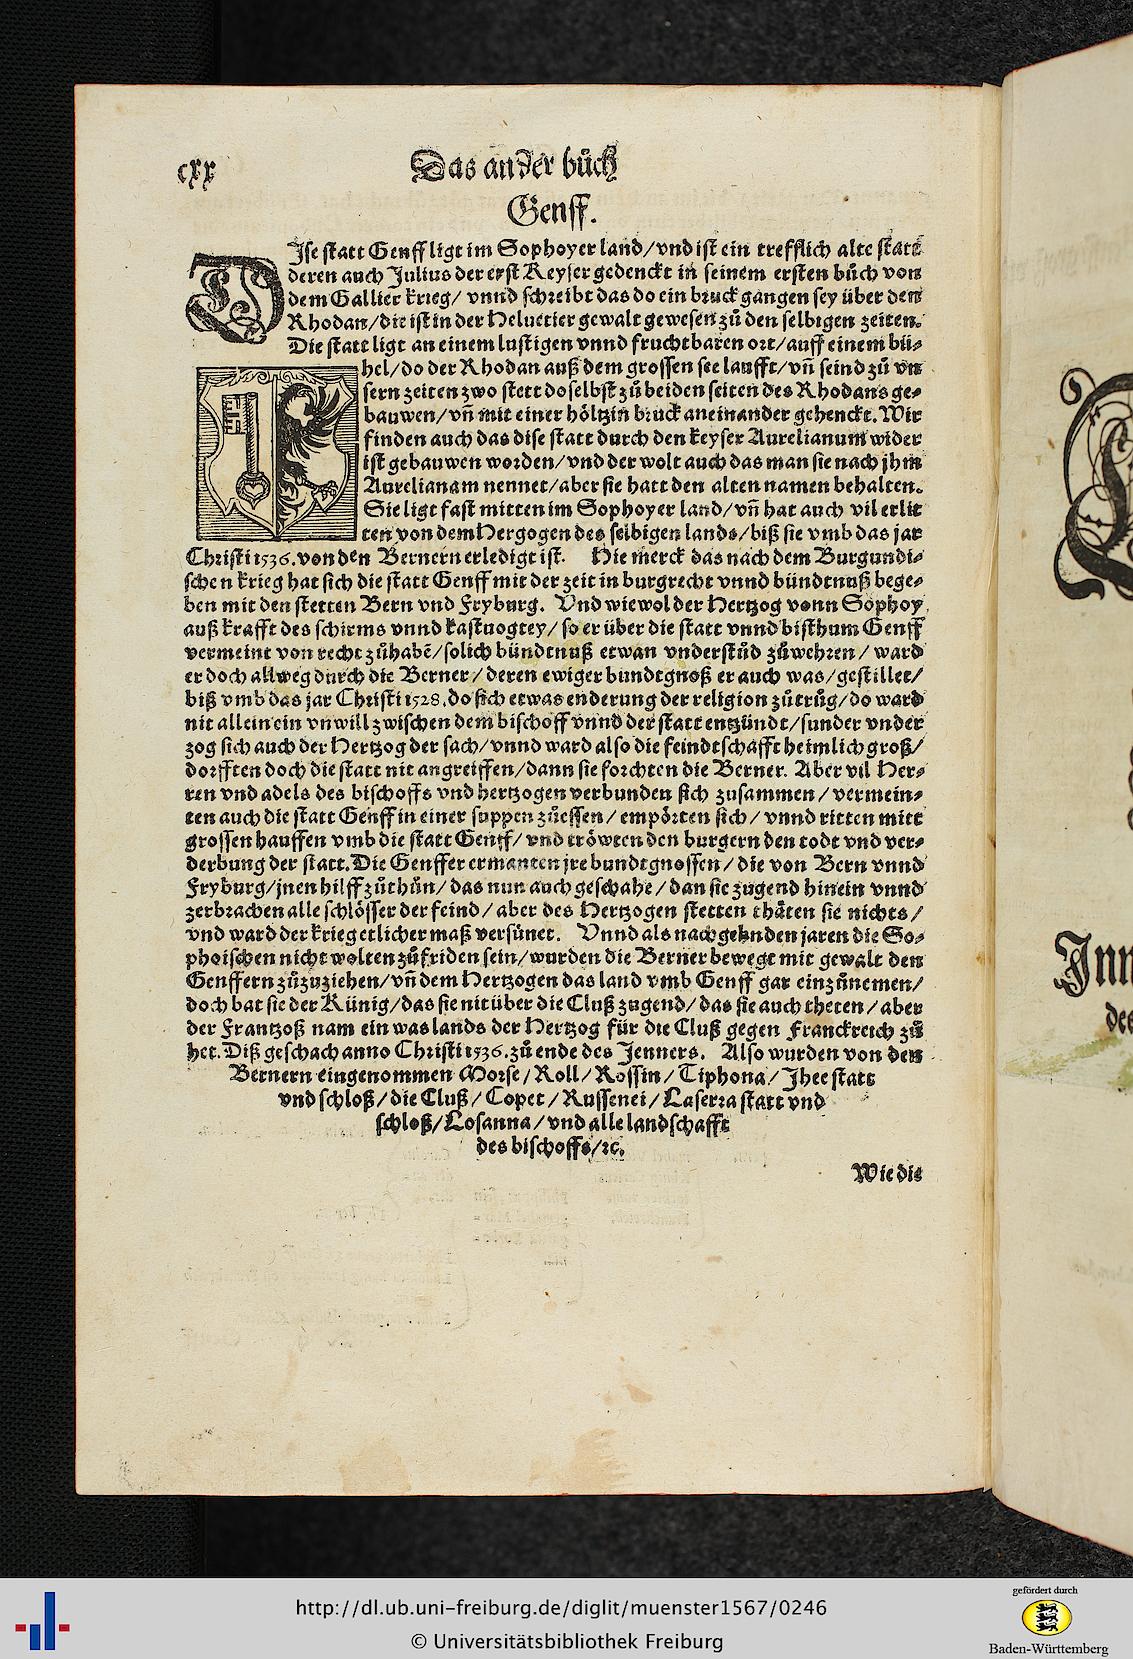 cxx
Das ander bůch
Genff.
DJse statt Genff ligt im Sophoyer land/vnd ist ein trefflich alte statt
deren auch Julius der erst Keyser gedenckt in seinem ersten bůch von
dem Gallier krieg/ vnnd schreibt das do ein bruck gangen sey über den
Rhodan/die ist in der Heluetier gewalt gewesen zů den selbigen zeiten.
Die statt ligt an einem lustigen vnnd fruchtbaren ort/auff einem bü⸗
hel/do der Rhodan auß dem grossen see laufft/vñ seind zů vn
sern zeiten zwo stett doselbst zů beiden seiten des Rhodans ge⸗
bauwen/vñ mit einer höltzin bruck aneinander gehenckt. Wir
finden auch das dise statt durch den keyser Aurelianum wider
ist gebauwen worden/vnd der wolt auch das man sie nach jhm
Aurelianam nennet/aber sie hatt den alten namen behalten.
Sie ligt fast mitten im Sophoyer land/vñ hat auch vil erlit
ten von dem Hergogen des selbigen lands/biß sie vmb das jar
Christi 1536. von den Bernern erledigt ist. Hie merck das nach dem Burgundi⸗
schen krieg hat sich die statt Genff mit der zeit in burgrecht vnnd bündtnuß bege⸗
ben mit den stetten Bern vnd Fryburg. Vnd wiewol der Hertzog vonn Sophoy
auß krafft des schirms vnnd kastuogtey/ so er über die statt vnnd bisthum Genff
vermeint von recht zůhabē/solich bündtnuß etwan vnderstůd zůwehren/ ward
er doch allweg durch die Berner/ deren ewiger bundtgnoß er auch was/gestillet/
biß vmb das jar Christi 1528. do sich etwas enderung der religion zůtrůg/do ward
nit allein ein vnwill zwischen dem bischoff vnnd der statt entzündt/sunder vnder
zog sich auch der Hertzog der sach/vnnd ward also die feindtschafft heimlich groß/
dorfften doch die statt nit angreiffen/dann sie forchten die Berner. Aber vil Her⸗
ren vnd adels des bischoffs vnd hertzogen verbunden sich zusammen/ vermein⸗
ten auch die statt Genff in einer suppen zůessen/ empörten sich/ vnnd ritten mitt
grossen hauffen vmb die statt Genff/ vnd tröwten den burgern den todt vnd ver⸗
derbung der statt. Die Genffer ermanten jre bundtgnossen/ die von Bern vnnd
Fryburg/jnen hilff zůthůn/ das nun auch geschahe/ dan sie zugend hinein vnnd
zerbrachen alle schlösser der feind/ aber des Hertzogen stetten thäten sie nichts/
vnd ward der krieg etlicher maß versünet. Vnnd als nachgehnden jaren die So⸗
phoischen nicht wolten zůfriden sein/wurden die Berner bewegt mit gewalt den
Genffern zůzuziehen/vñ dem Hertzogen das land vmb Genff gar einzůnemen/
doch bat sie der Künig/das sie nit über die Cluß zugend/ das sie auch theten/ aber
der Frantzoß nam ein was lands der Hertzog für die Cluß gegen Franckreich zů
het. Diß geschach anno Christi 1536. zů ende des Jenners. Also wurden von den
Bernern eingenommen Morse/Roll/Rossin/Tiphona/Jhee statt
vnd schloß/die Cluß/Copet/Russenei/Laserra statt vnd
schloß/Losanna/vnd alle landschafft
des bischoffs/ꝛc.
Wie die
Jnn
des
http://dl.ub.uni-freiburg.de/diglit/muenster1567/0246
© Universitätsbibliothek Freiburg
gefördert durch
Baden-Württemberg